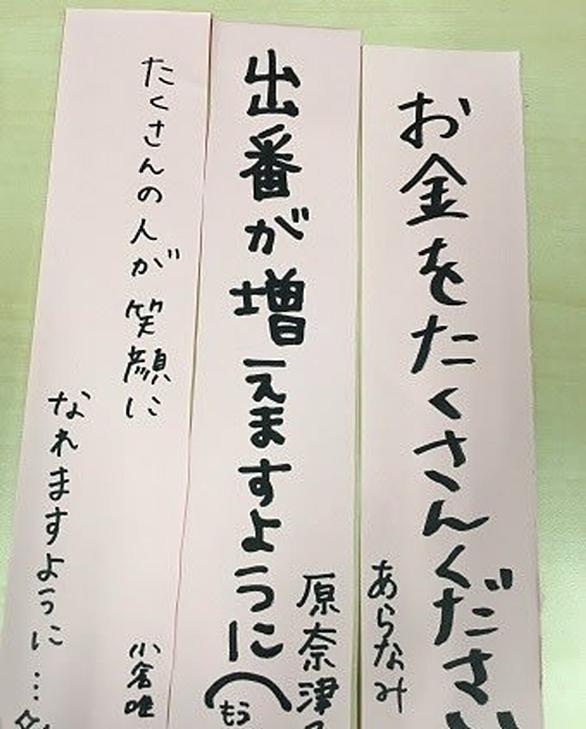 お金をたくさんください
あらなみ
出番が増えますように
(もう
原奈津
たくさんの人が笑顔に
なれますように…
小倉唯